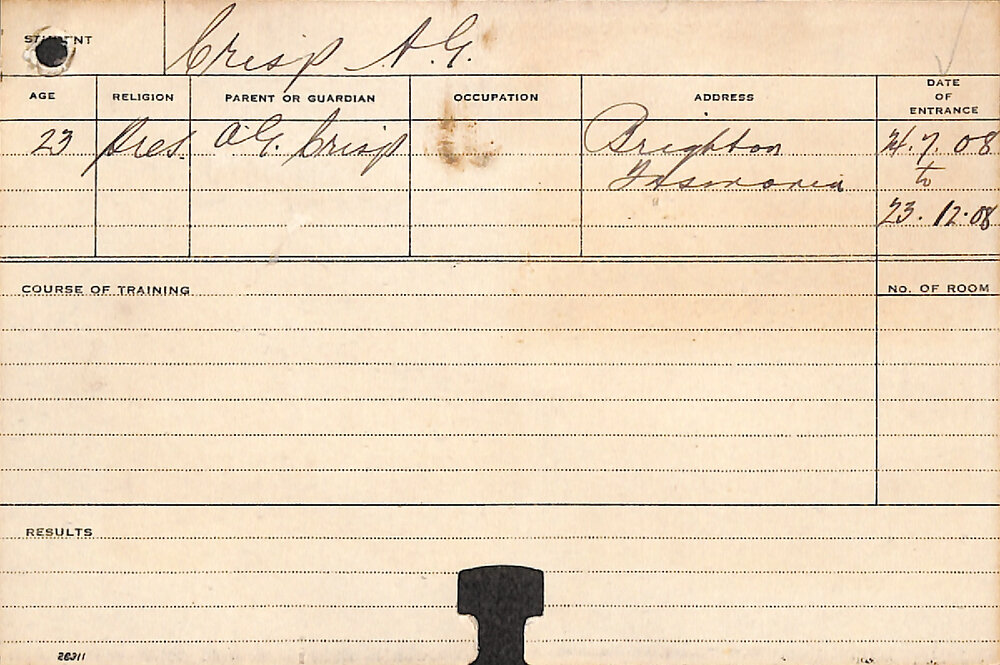 STUDENT Crisp A.G.
AGE RELIGION PARENT OR GUARDIAN OCCUPATION ADDRESS DATE OF ENTRANCE
23 Pres. A.G. Crisp Brighton 14.7.08
Tasmania to
23.12.08
COURSE OF TRAINING No. OF ROOM
RESULTS